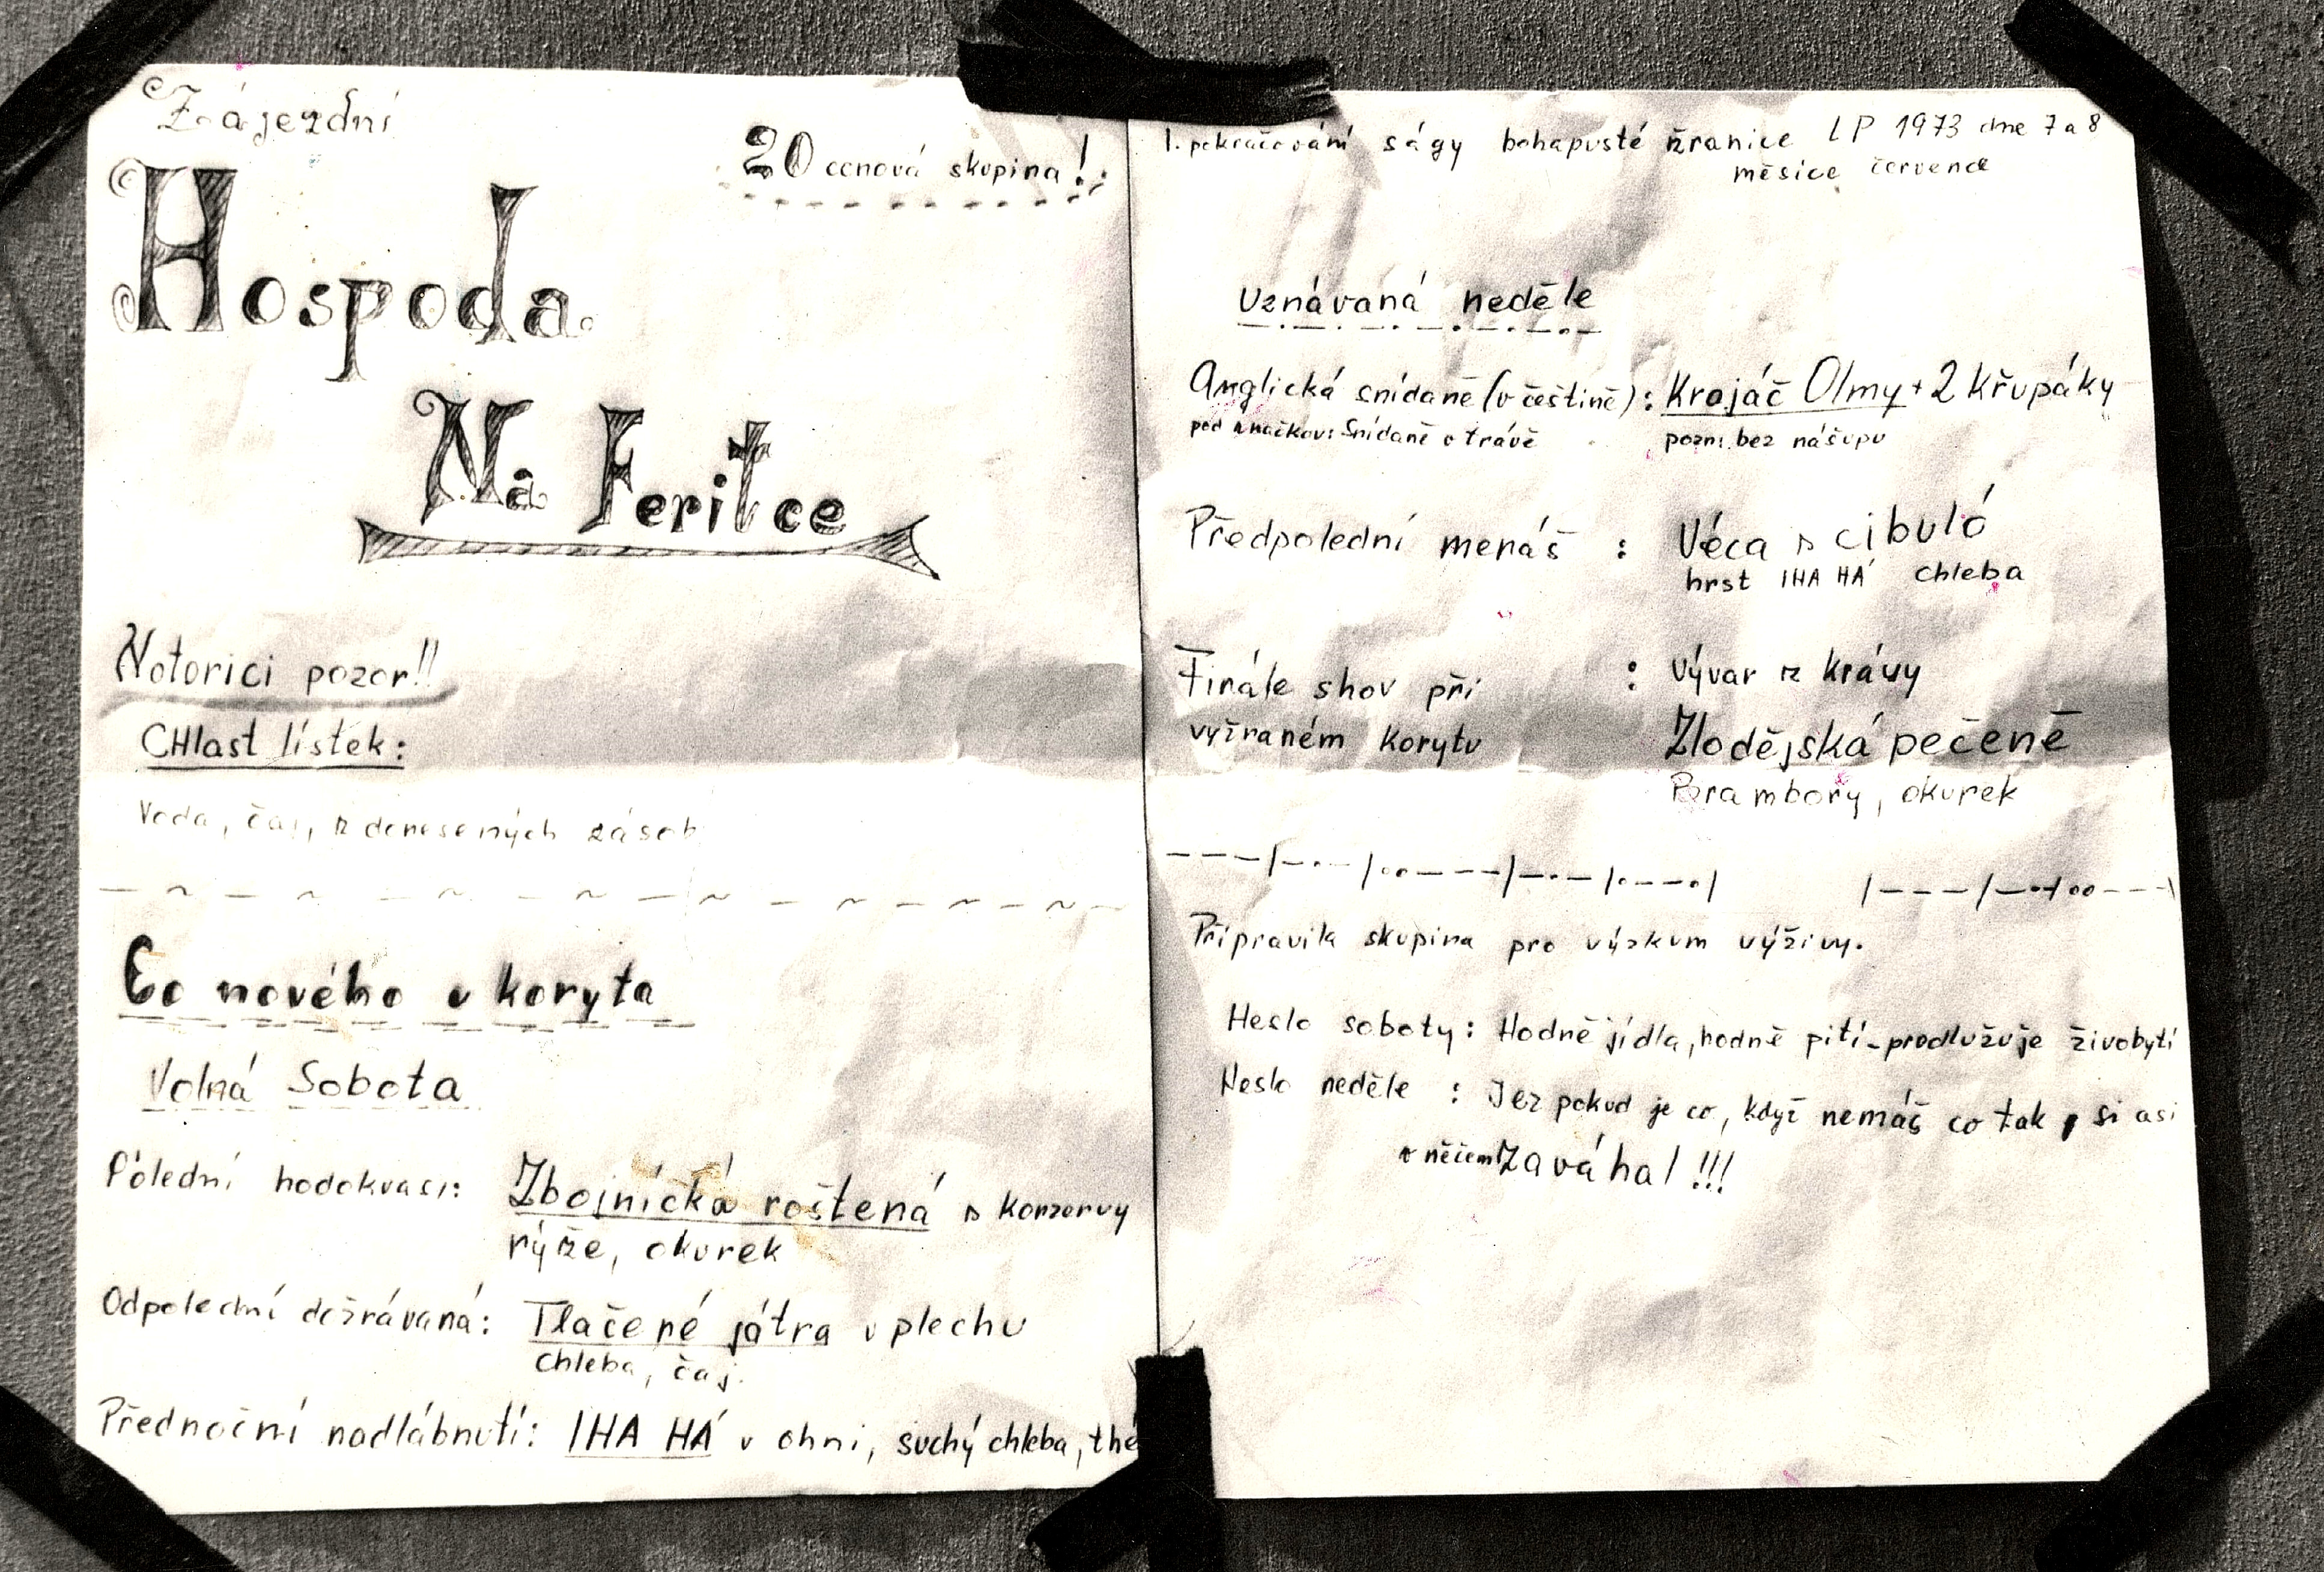 Zájezdní
20 cenová skupina!
Hospoda
Na Feritce
Notorici pozor!!
CHlast lístek:
Voda, čaj, z donesených zásob
Co nového v koryta
Volná Sobota
Polední hodokvasi: Zbojnická roštená s konzervy
rýže, okurek
Odpolední dožrávaná: Tlačené játra v plechu
chleba, čaj.
Přednoční nadlábnutí: IHA HÁ v ohni, suchý chleba, thé
1. pokračování ságy bohapusté žranice LP 1973 dne 7 a 8
měsíce července
Uznávaná neděle
Anglická snídaně (v češtině): Krojáč Olmy + 2 křupáky
pod značkou: Snídaně v trávě pozn: bez nášupu
Předpolední menáš : Véca s cibuló
hrst IHA HÁ chleba
Finále shov při : Vývar z krávy
vyžraném korytu Zlodějská pečeně
Brambory, okurek
Připravila skupina pro výzkum výživy.
Heslo soboty: Hodně jídla, hodně pití - prodlužuje živobytí
Heslo neděle : Jez pokud je co, když nemáš co tak si asi
v něčem zaváhal!!!